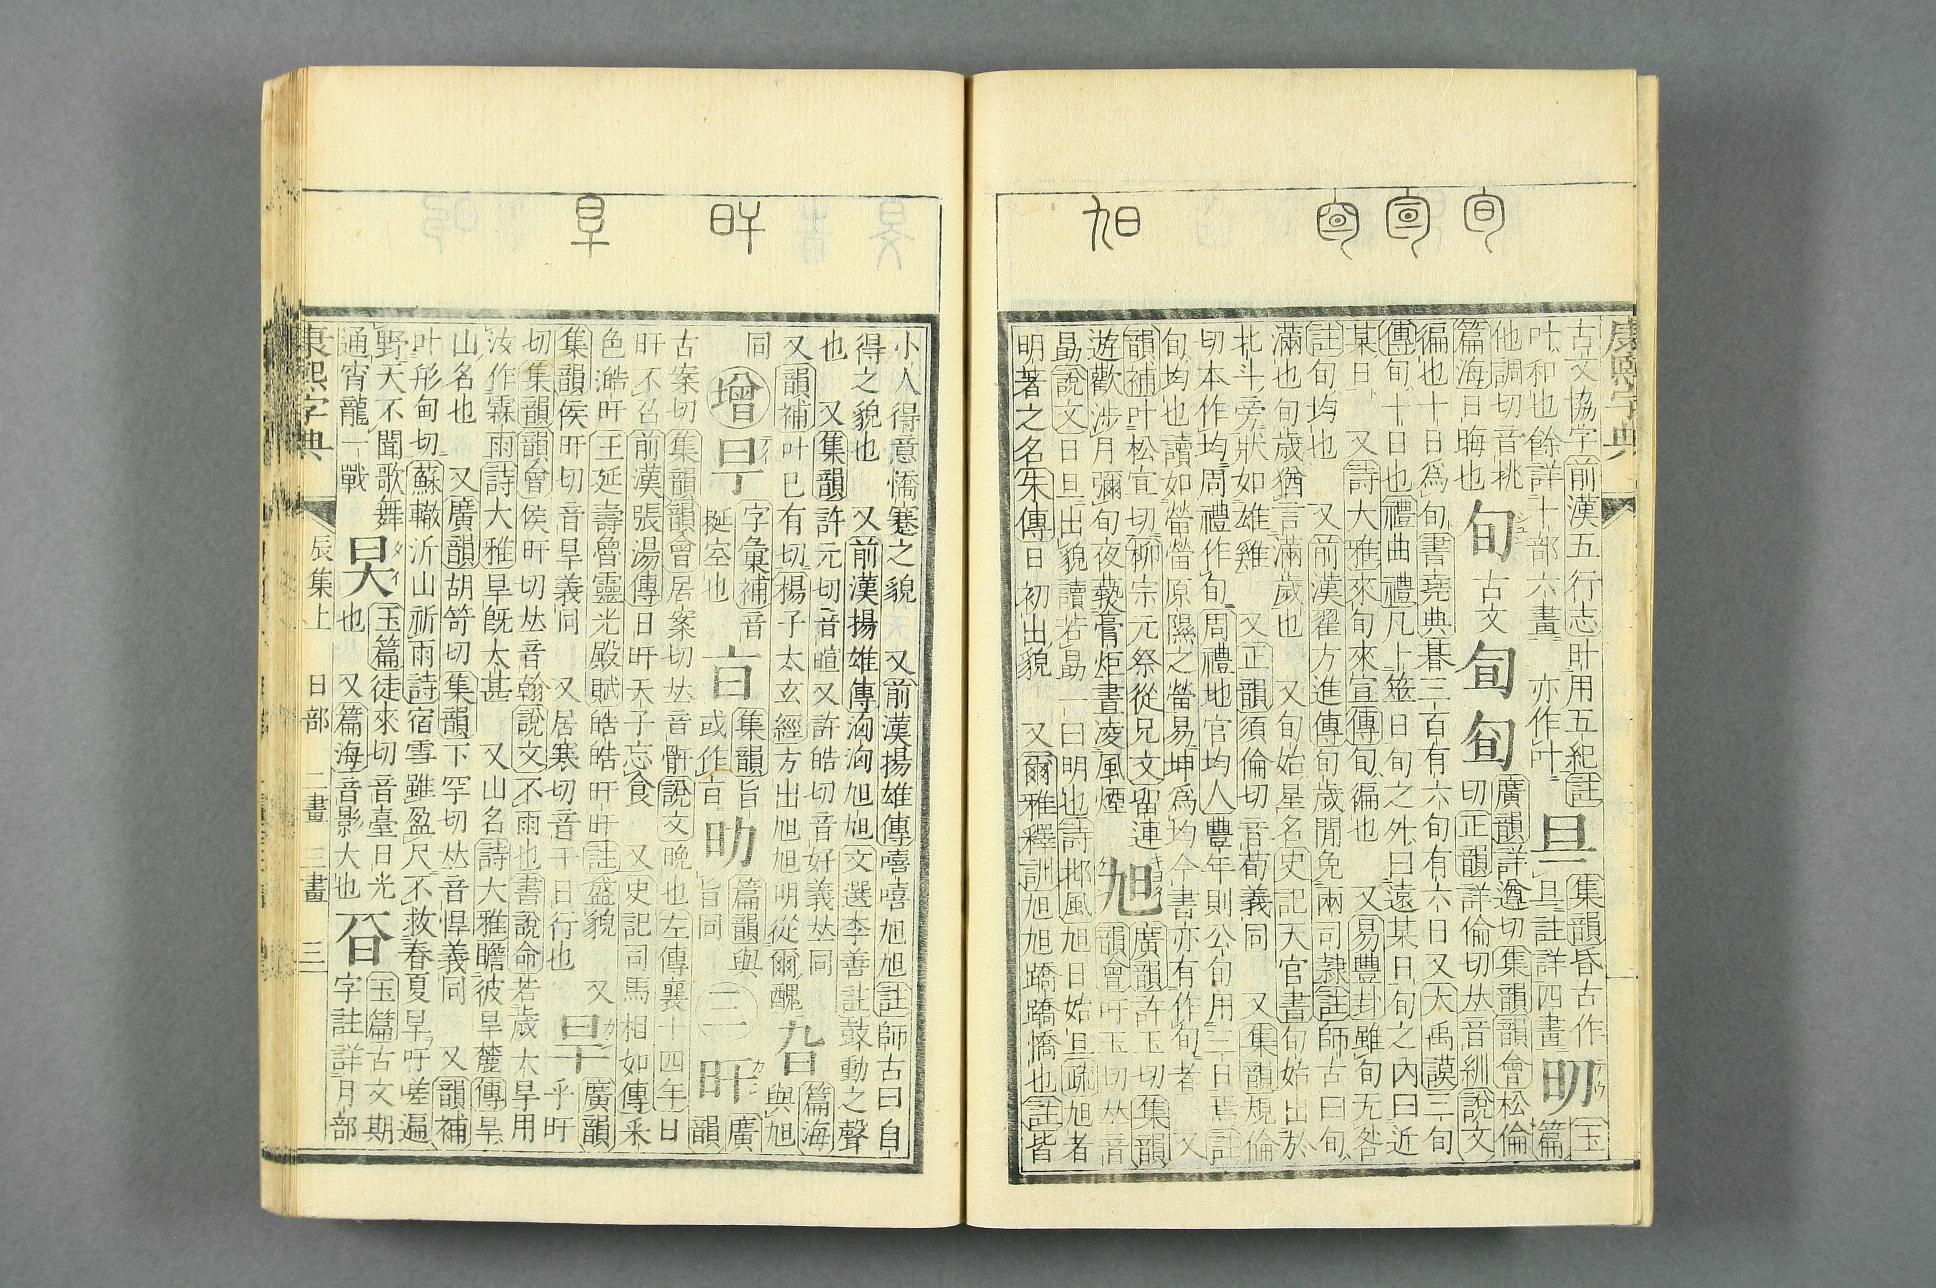 旬
旭
旰
旱
康熙字典
古文協字前漢五行志旪用五紀註
叶和也餘詳十部六畫 亦作叶
集韻昏古作
旦註詳四畫
玉篇
他調切音挑
篇海日晦也
旬
古文
廣韻詳遵切集韻韻會松倫
切正韻詳倫切𠀤音紃說文
徧也十日爲旬書堯典朞三百有六旬有六日又大禹謨三旬
傳旬十日也禮曲禮凡卜筮日旬之外曰遠某日旬之內曰近
某日 又詩大雅來旬來宣傳旬徧也 又易豐卦雖旬无咎
註旬均也 又前漢翟方進傳旬歲閒免兩司隷註師古曰旬
滿也旬歲猶言滿歲也 又旬始星名史記天官書旬始出於
北斗旁狀如雄雞 又正韻須倫切音荀義同 又集韻規倫
切本作均周禮作旬周禮地官均人豐年則公旬用三日焉註
旬均也讀如䇹䇹原隰之䇹易坤爲均今書亦有作旬者 又
韻補叶松宣切柳宗元祭從兄文留連
遊歡涉月彌旬夜爇膏炬晝凌風煙
旭
廣韻許玉切集韻
韻會吁玉切𠀤音
勗說文日旦出貌讀若勗一曰明也詩邶風旭日始旦疏旭者
明著之名朱傳日初出貌 又爾雅釋訓旭旭蹻蹻憍也註皆
小人得意憍蹇之貌 又前漢揚雄傳嘻嘻旭旭註師古曰自
得之貌也 又前漢揚雄傳洶洶旭旭文選李善註鼓動之聲
也 又集韻許元切音暄又許皓切音好義𠀤同
又韻補叶已有切揚子太玄經方出旭旭明從爾醜
旮
篇海
與旭
同
增
字彙補音
挻空也
集韻旨
或作
篇韻與
旨同
三
旰
廣韻
古案切集韻韻會居案切𠀤音骭說文晚也左傳襄十四年日
旰不召前漢張湯傳日旰天子忘食 又史記司馬相如傳采
色澔旰王延壽魯靈光殿賦皓皓旰旰註盛貌 又
集韻侯旰切音旱義同 又居寒切音干日行也
旱
廣韻
乎旰
切集韻韻會侯旰切𠀤音翰說文不雨也書說命若歲大旱用
汝作霖雨詩大雅旱旣太甚 又山名詩大雅瞻彼旱麓傳旱
山名也 又廣韻胡笴切集韻下罕切𠀤音悍義同 又韻補
叶形甸切蘇轍沂山祈雨詩宿雪雖盈尺不救春夏旱吁嗟遍
野天不聞歌舞
通宵龍一戰
旲
玉篇徒來切音臺日光
也 又篇海音影大也
玉篇古文期
字註詳月部
康熙字典
辰集上 日部 二畫 三畫
三